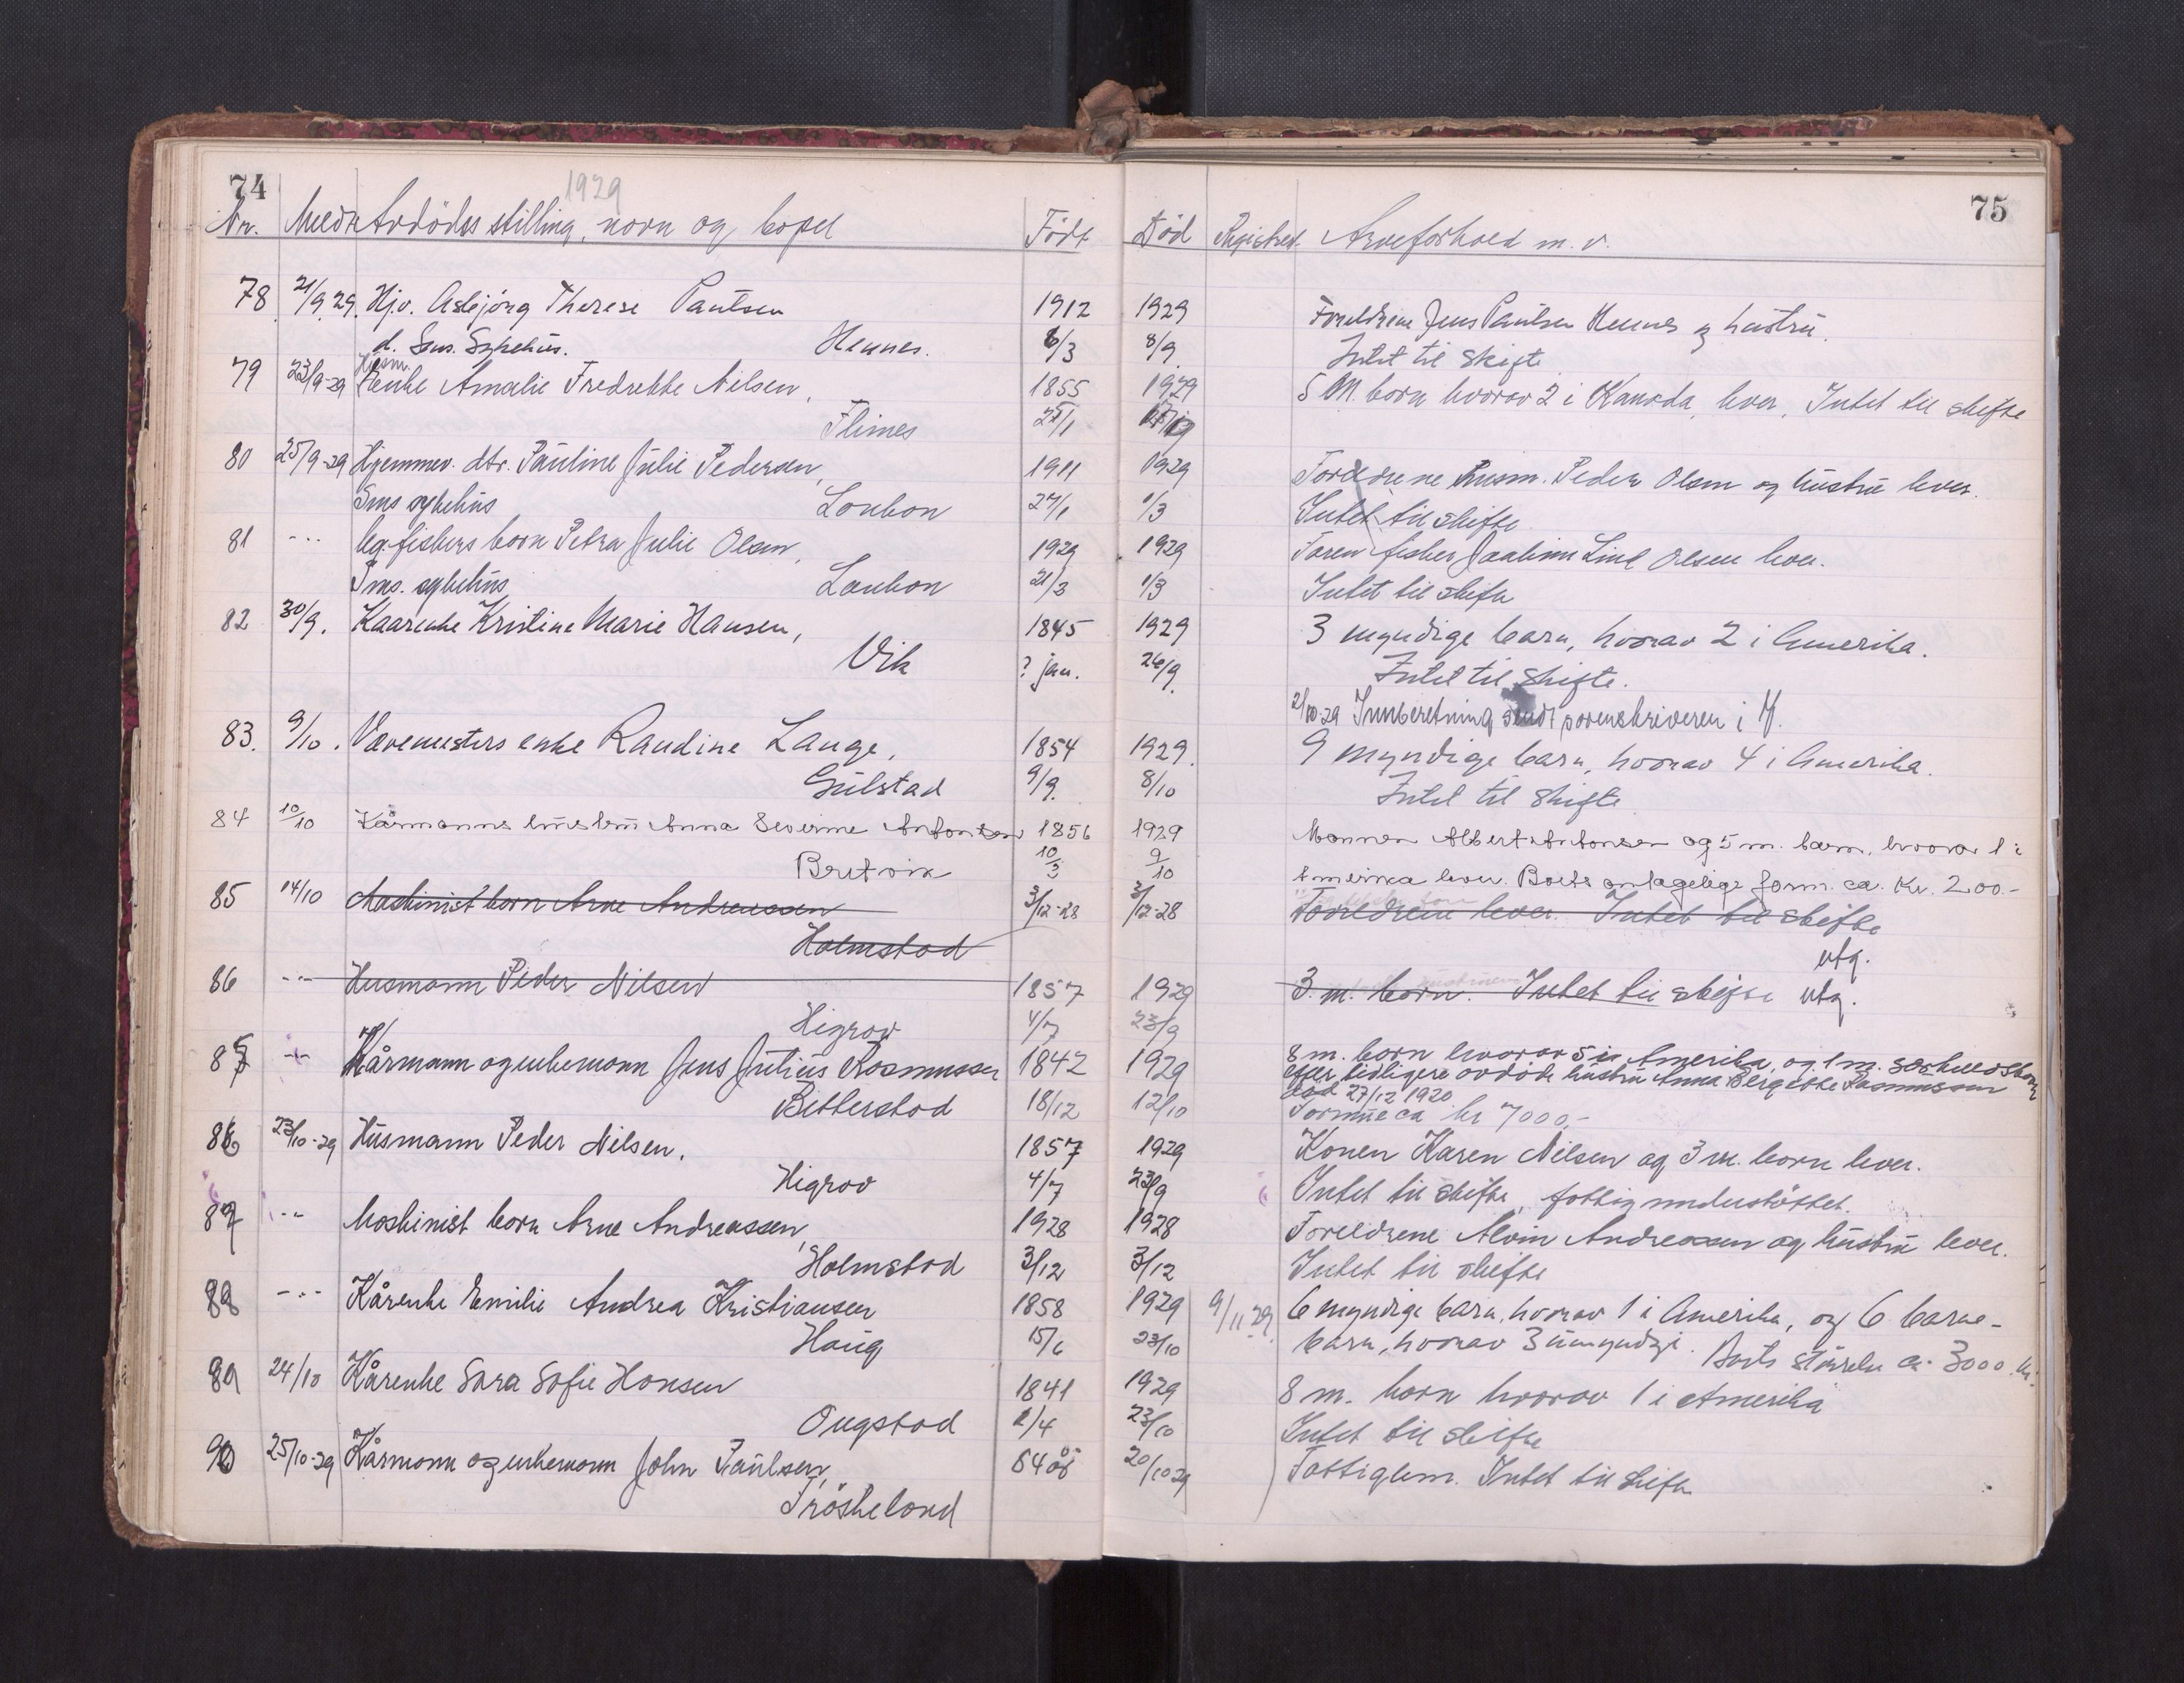 74
1929
75
Nr. Meldt Avdödes stilling, navn og bopel Födt Död Registrert Arveforhold m. v.
78 21/9 29. Hj.v. Asbjörg Therese Paulsen 1912 1929 Foreldrene Jens Paulsen Hennes og hustru.
d. Sms. Sykehus. Hennes. 6/3 8/9. Intet til skifte
79 23/9-29 Husm. Enke Amalie Fredrekke Nilsen, 1855 1929 5 M. born hvorav 2 i Kanada, lever. Intet til skifte
Flimes 25/1
80 25/9-29 Hjemmev. dtr. Pauline Julie Pedersen, 1911 1929 Foreldrene Husm. Peder Olsen og hustru lever.
Sms sykehus Lonkon 27/1 1/3 Intet til skifte.
81 -"- Ug. fiskers born Petra Julie Olsen, 1929 1929 Faren fisker Joakim Olsen lever.
Sms. sykehus Lonkon 21/3 1/3 Intet til skifte
82 30/9. Kaarenke Kristine Marie Hansen, 1845 1929 3 myndige barn, hvorav 2 i Amerika.
Vik ? jan. 26/9. Intet til skifte.
2/10-29 Innberetning sendt sorenskriveren i
83. 9/10. Væremesters enke Randine Lange, 1854 1929. 9 myndige barn, hvorav 4 i Amerika.
Gulstad 9/9. 8/10 Intet til skifte
84 10/10 Kårmanns hustru Anna Severine Antonsen 1856 1929 Mannen Albert Antonsen og 5 m. barn, hvorav 1 i
Bretvik 10/3 9/10 Amerika lever. Boets antagelige form. ca. Kr. 200.-
85 14/10 Maskinist born Arne Andreassen 3/12-28 3/12-28 Foreldrene lever. Intet til skifte
Holmstad utg.
86 -"- Husmann Peder Nilsen 1857 1929 3. m. born. Intet til skifte utg.
Higrov 4/7 23/9
85 -"- Kårmann og enkemann Jens Julius Rasmussen 1842 1929 8 m. born hvorav 5 i Amerika, og 1 m. særkullsbarn
efter tidligere avdöde hustru Anna Bergeske Rasmussen
död 27/12 1920
Betterstad 18/12 12/10 Formue ca kr 7000.-
86 23/10-29 Husmann Peder Nilsen. 1857 1929 Konen Karen Nilsen og 3 m. born lever.
Higrov 4/7 23/9 Intet til skifte, fattigunderstöttet.
87 -"- Maskinist born Arne Andreassen, 1928 1928 Foreldrene Alvin Andreassen og hustru lever.
Holmstad 3/12 3/12 Intet til skifte
88 -"- Kårenke Emilie Andrea Kristiansen 1858 1929 9/11 29. 6 myndige barn, hvorav 1 i Amerika, og 6 barne-
Haug 15/6 23/10 barn, hvorav 3 umyndige. Boets störrelse ca. 3000 kr.
89 24/10 Kårenke Sara Sofie Hansen 1841 1929 8 m. born hvorav 1 i Amerika
Ougstad 2/4 23/10 Intet til skifte
90 25/10-29 Kårmann og enkemann John Paulsen, 84 år 20/10 29 Fattiglem. Intet til skifte
Fröskeland